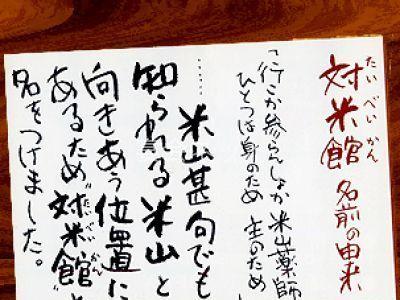 対米館 名前の由来
たいべいかん
「行こか参らんしょか 米山薬師
ひとつは身のため 主のため
……米山甚句でも
知られる米山と
向きあう位置に
あるため“対米館”と
たいべいかん
名をつけました。